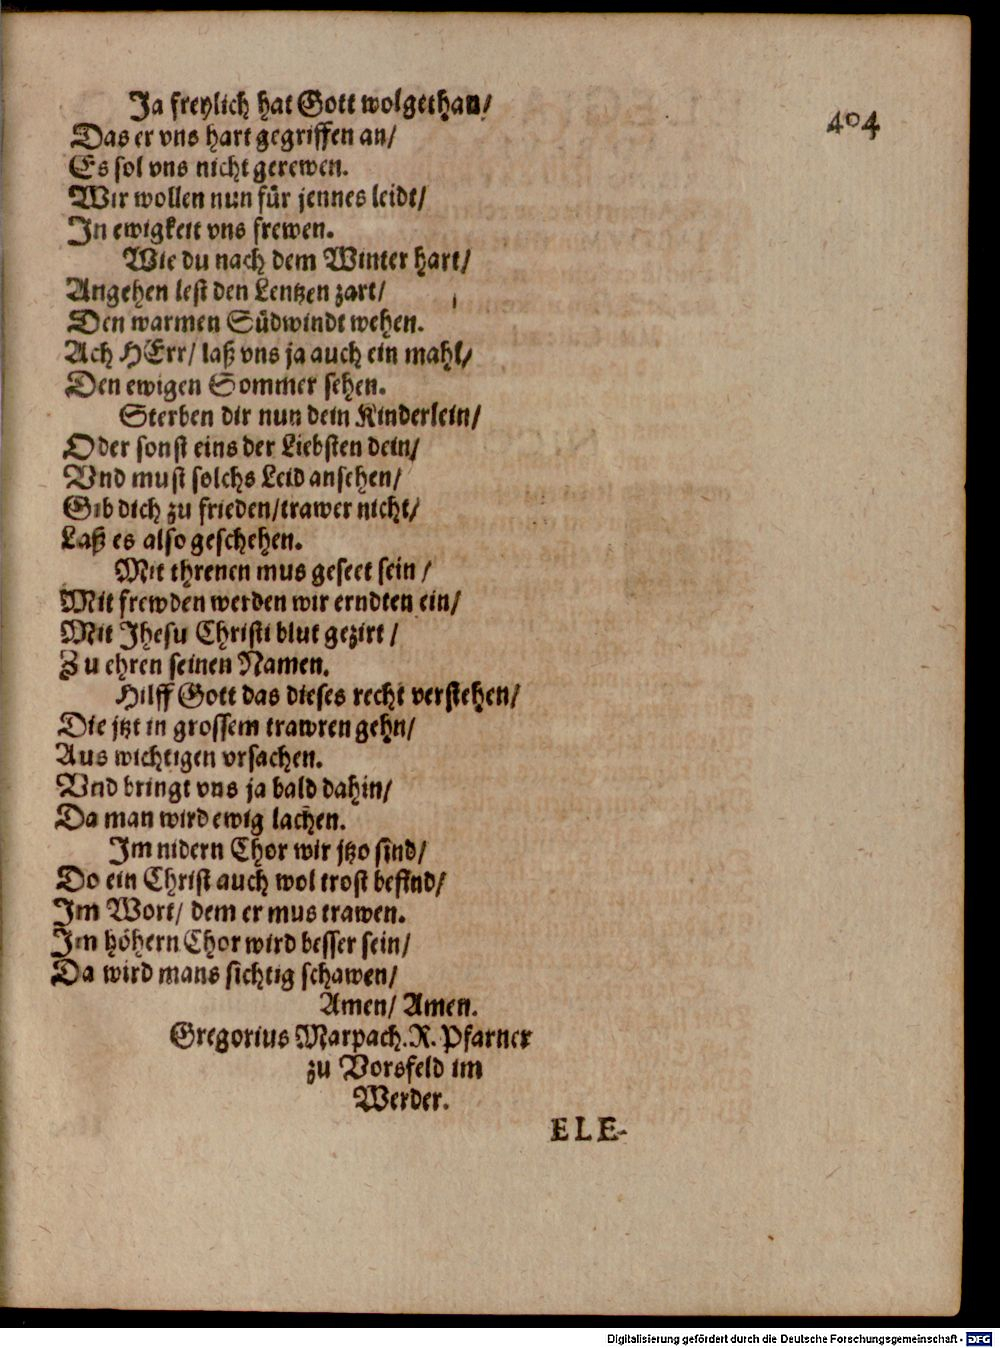 Ja freylich hat Gott wolgethan/
404
Das er vns hart gegriffen an/
Es sol vns nicht gerewen.
Wir wollen nun für jennes leidt/
In ewigkeit vns frewen.
Wie du nach dem Winter hart/
Angehen lest den Lentzen zart/
Den warmen Südwindt wehen.
Ach HErr/ laß vns ja auch ein mahl/
Den ewigen Sommer sehen.
Sterben dir nun dein Kinderlein/
Oder sonst eins der Liebsten dein/
Vnd must solchs Leid ansehen/
Gib dich zu frieden/trawer nicht/
Laß es also geschehen.
Mit threnen mus geseet sein /
Mit frewden werden wir erndten ein/
Mit Jhesu Christi blut gezirt /
Zu ehren seinen Namen.
Hilff Gott das dieses recht verstehen/
Die jtzt in grossem trawren gehn/
Aus wichtigen vrsachen.
Vnd bringt vns ja bald dahin/
Da man wird ewig lachen.
Im nidern Chor wir jtzo sind/
Do ein Christ auch wol trost befind/
Im Wort/ dem er mus trawen.
Im höhern Chor wird besser sein/
Da wird mans sichtig schawen/
Amen/ Amen.
Gregorius Marpach. R. Pfarner
zu Vorsfeld im
Werder.
ELE-
Digitalisierung gefördert durch die Deutsche Forschungsgemeinschaft - DFG